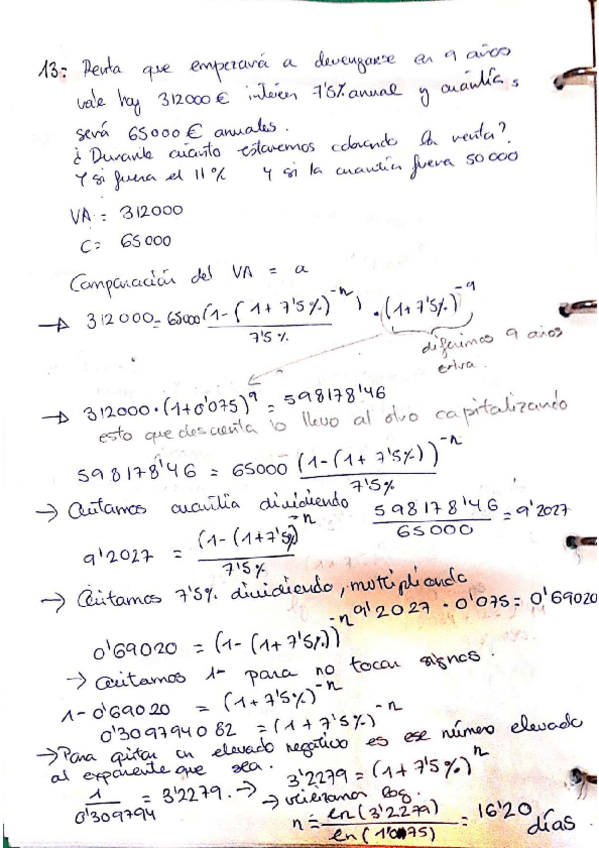 13: Renta que empezará a devengarse en 9 años
vale hoy 312000 € interés 7'5% anual y cuantía s
será 65000 € anuales.
¿Durante cuánto estaremos cobrando la renta?
Y si fuera el 11% Y si la cuantía fuera 50000
VA = 312000
C= 65000
Comparación del VA = a
→ 312000 = 65000 (1-(1+7'5%)^-n) / 7'5% · (1+7'5%)^-9
diferimos 9 años
extra.
→ 312000·(1+0'075)^9 = 598178'46
esto que descuenta lo llevo al otro capitalizando
598178'46 = 65000 (1-(1+7'5%))^-n / 7'5%
→ Quitamos cuantía dividiendo 598178'46 / 65000 = 9'2027
9'2027 = (1-(1+7'5%)^-n / 7'5%
→ Quitamos 7'5% dividiendo, multiplicando
9'2027 · 0'075 = 0'69020
0'69020 = (1-(1+7'5%))^-n
→ Quitamos 1- para no tocar signos.
1-0'69020 = (1+7'5%)^-n
0'309794082 = (1+7'5%)^-n
→ Para quitar un elevado negativo es ese número elevado
al exponente que sea.
1 / 0'309794 = 3'2279. → 3'2279 = (1+7'5%)^n
→ log.
n = en(3'2279) / en(1'075) = 16'20 días.